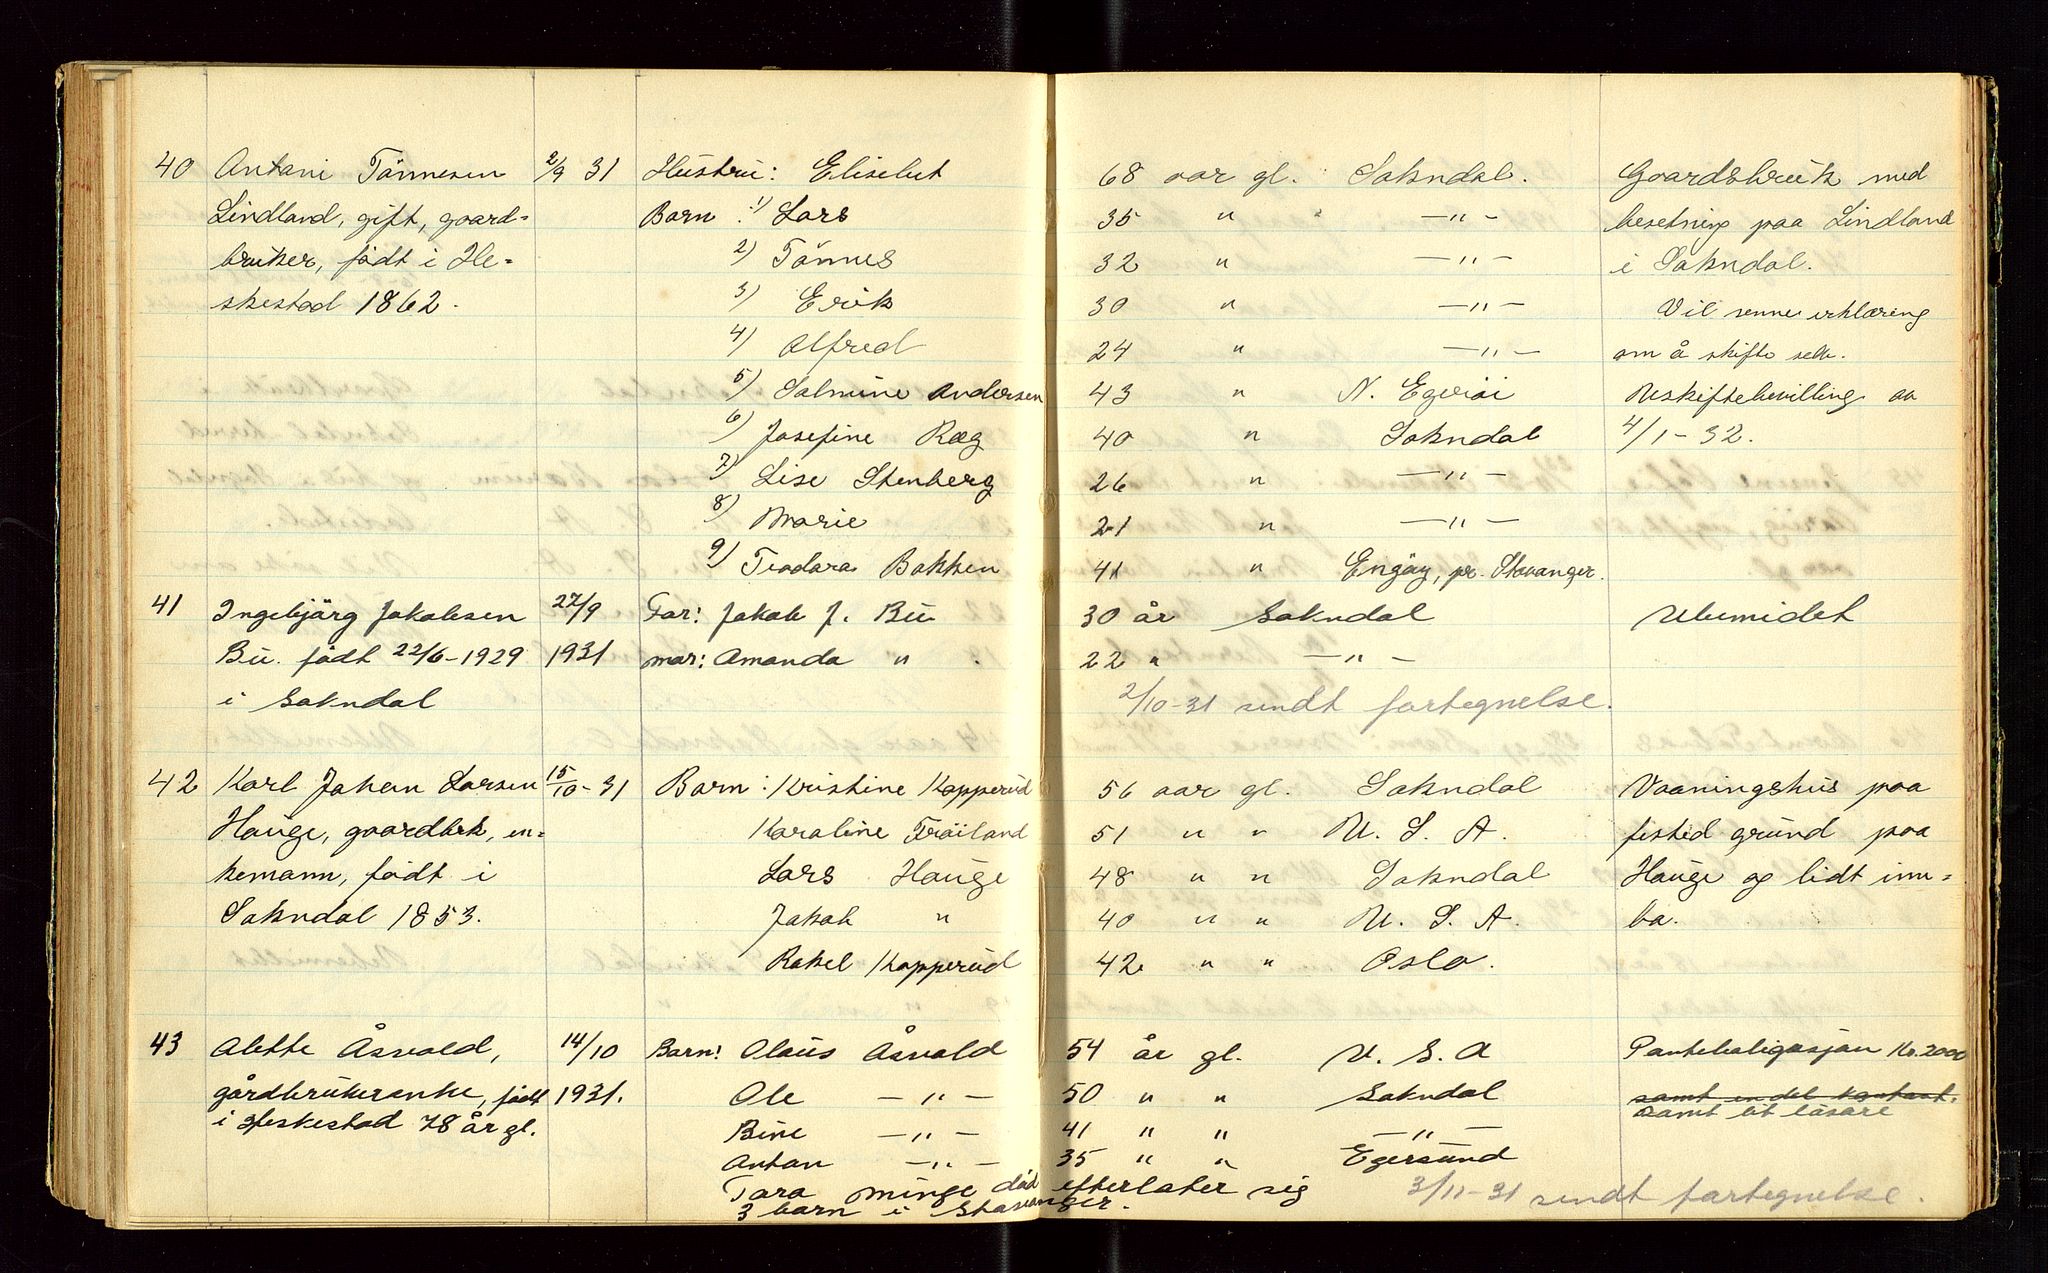 40 Antoni Tönnesen 2/9 31 Hustru: Elisebet 68 aar gl. Sokndal. Gaardsbruk med
Lindland, gift, gaard= Barn: 1) Lars 35 " —"— besetning paa Lindland
bruker, födt i He= 2) Tönnes 32 " —"— i Sokndal.
skestad 1862. 3) Erik 30 " —"— Vil senne erklæring
4) Alfred 24 " —"— om å skifte selv.
5) Salmine Andersen 43 " N. Egeröi Uskiftebevilling av
6) Josefine Ræg 40 " Sokndal 4/1-32.
7) Lise Stenberg 26 " —"—
8) Marie 21 " —"—
9) Teodora Bakken 41 " Engöy, pr. Stavanger.
41 Ingebjörg Jakobsen 27/9 Far: Jakob J. Bu 30 år Sokndal Ubemidlet
Bu. födt 22/6-1929 1931 mor: Amanda " . 22 " —"—
i Sokndal 2/10-31 sendt fortegnelse.
42 Karl Johan Larsen 15/10-31 Barn: Kristine Kopperud 56 aar gl. Sokndal Vaaningshus paa
Hauge, gaardbrk, en= Karoline Tröiland 51 " " U. S. A. fested grund paa
kemann, födt i Lars Hauge 48 " " Sokndal Hauge og lidt inn=
Sokndal 1853. Jakob " 40 " " U. S. A. bo.
Rakel Kopperud 42 " " Oslo.
43 Alette Åsvold, 14/10 Barn: Olaus Åsvold 54 år gl. U. S. A Panteobligasjon Kr. 2000
gårdbrukerenke, födt 1931. Ole —"— 50 " " Sokndal samt en del kontant.
i Heskestad 78 år gl. Bine —"— 41 " " —"— samt lit lösöre
Anton —"— 35 " " Egersund
Tora Minge död efterlater sig 3/11-31 sendt fortegnelse.
3 barn i Stavanger.